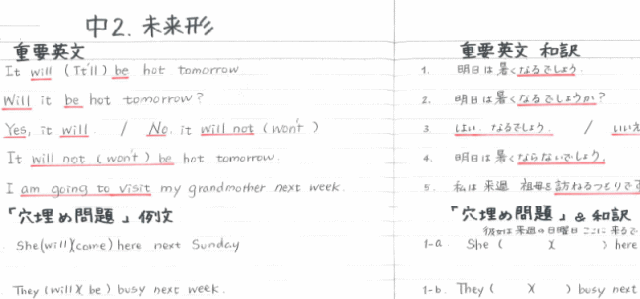 中2. 未来形
重要英文
It will (It'll) be hot tomorrow
Will it be hot tomorrow?
Yes, it will. / No. it will not (won't)
It will not (won't) be hot tomorrow.
I am going to visit my grandmother next week.
「穴埋め問題」例文
She(will)(come) here next Sunday
They (will)( be ) busy next week.
重要英文 和訳
1. 明日は暑くなるでしょう.
2. 明日は暑くなるでしょうか?
3. はい. なるでしょう. / いいえ
4. 明日は暑くならないでしょう.
5. 私は来週 祖母を訪ねるつもりです
「穴埋め問題」& 和訳
彼女は来週の日曜日ここに来るで
1-a. She ( )( ) here
1-b. They ( )( ) busy next